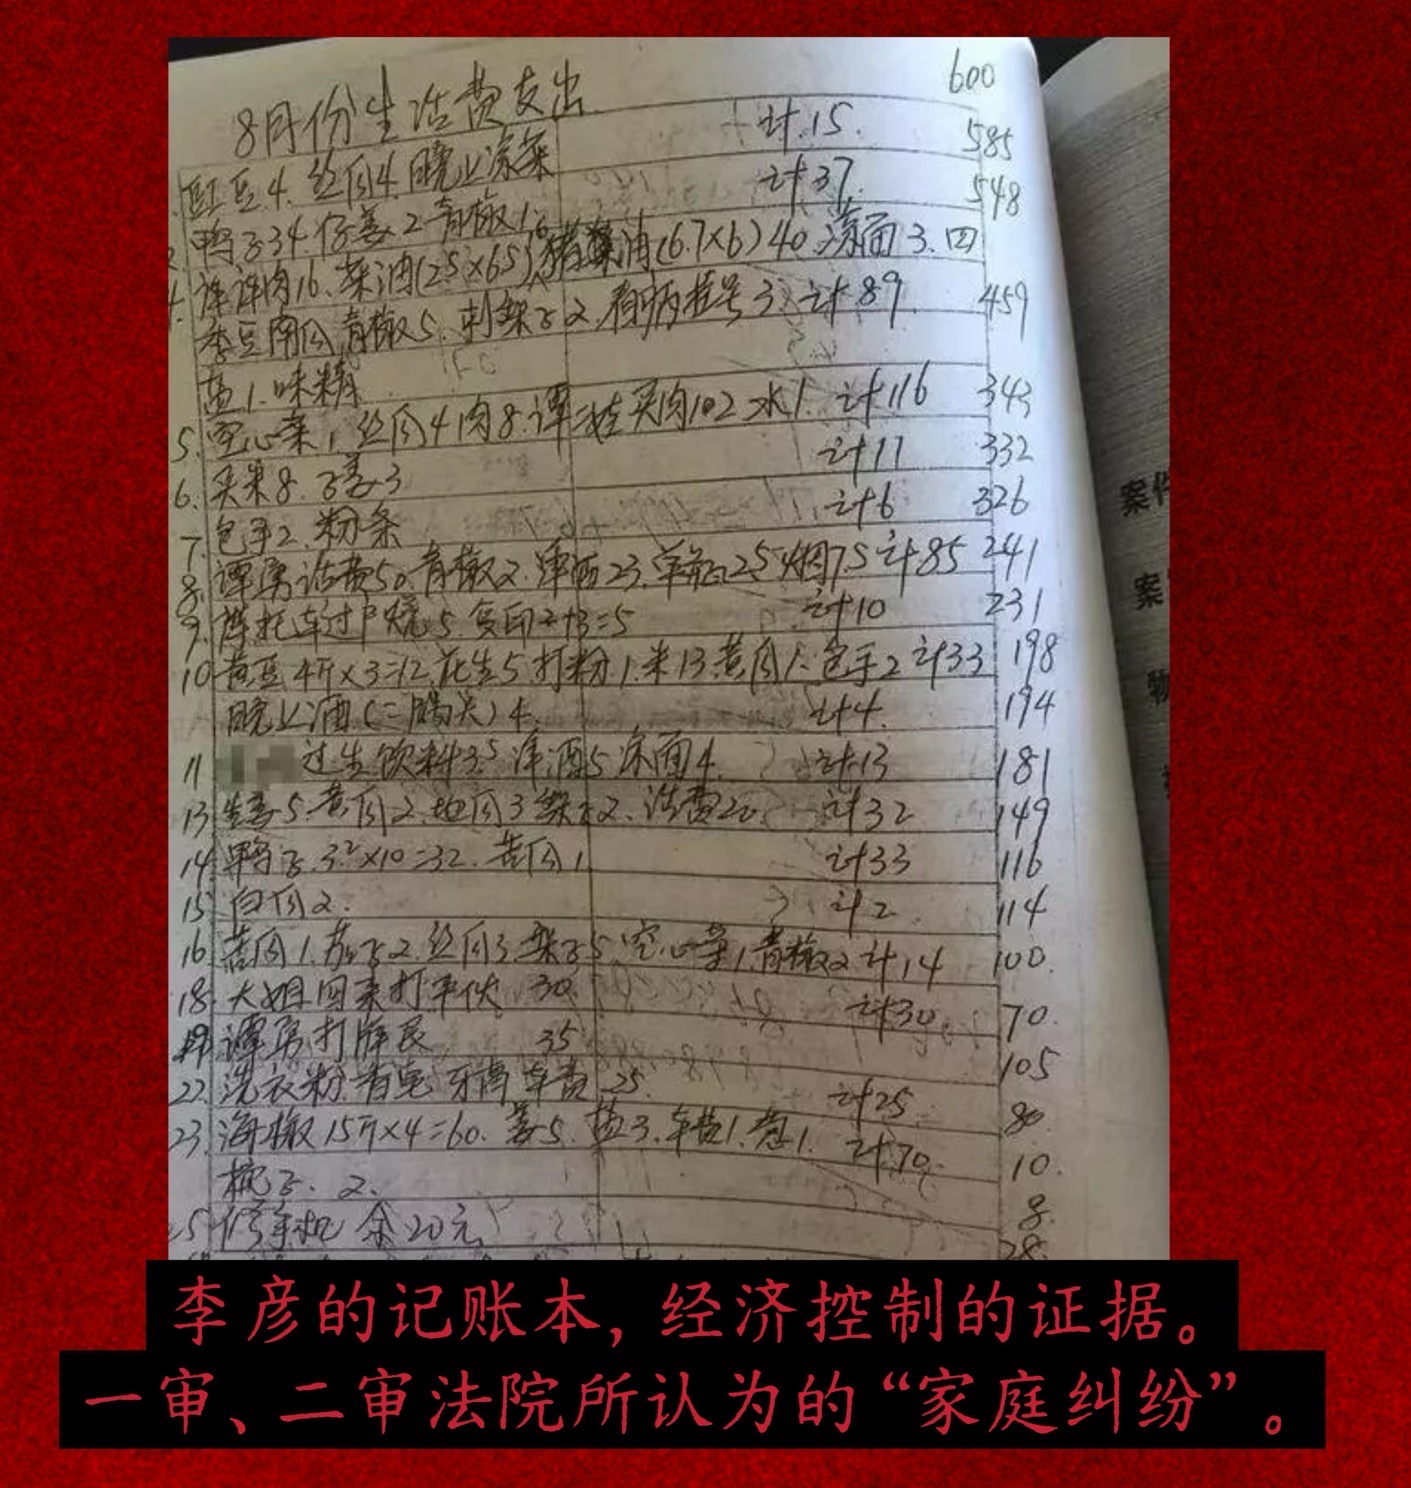 8月份生活费支出 600
豇豆4.丝瓜4.晚上凉菜 计15. 585
鸭子34仔姜2青椒1 计37. 548
肉16.菜油(25×65) 油(6.7×6)40.凉面3.四
季豆南瓜青椒5. 2.看病挂号3.计89. 459
盐1.味精
5.空心菜1.丝瓜4肉8.谭 买肉102冰1.计116 343
6.买米8.子姜3 计11 332
7.包子2.粉条 计6 326
8.谭勇话费50.青椒2.啤酒23. 25烟75计85 241
9.摩托车过户 5.复印2+3=5 计10 231
10.黄豆4斤×3=12.花生5.打粉1.米13.黄瓜1.包子2计33 198
晚上酒( )4. 计4. 194
11 过生饮料3.5洋酒5凉面4. 计13 181
13.生姜5.黄瓜2.地瓜3 2.话费20 计32 149
14.鸭子3.2×10=32.苦瓜1 计33 116
15.白瓜2. 计2 114
16.苦瓜1.茄子2.丝瓜3. 5.空心菜1.青椒2计14 100.
18.大姐回来打平伙30. 计30 70.
19.谭勇打牌 35 105
22.洗衣粉.香皂.牙膏车费25. 计25 80
23.海椒15斤×4=60.姜5.盐3.车费1.葱1.计70. 10.
梳子.2. 8.
25 手机余20元 28.
案件
案
物
李彦的记账本，经济控制的证据。
一审、二审法院所认为的“家庭纠纷”。